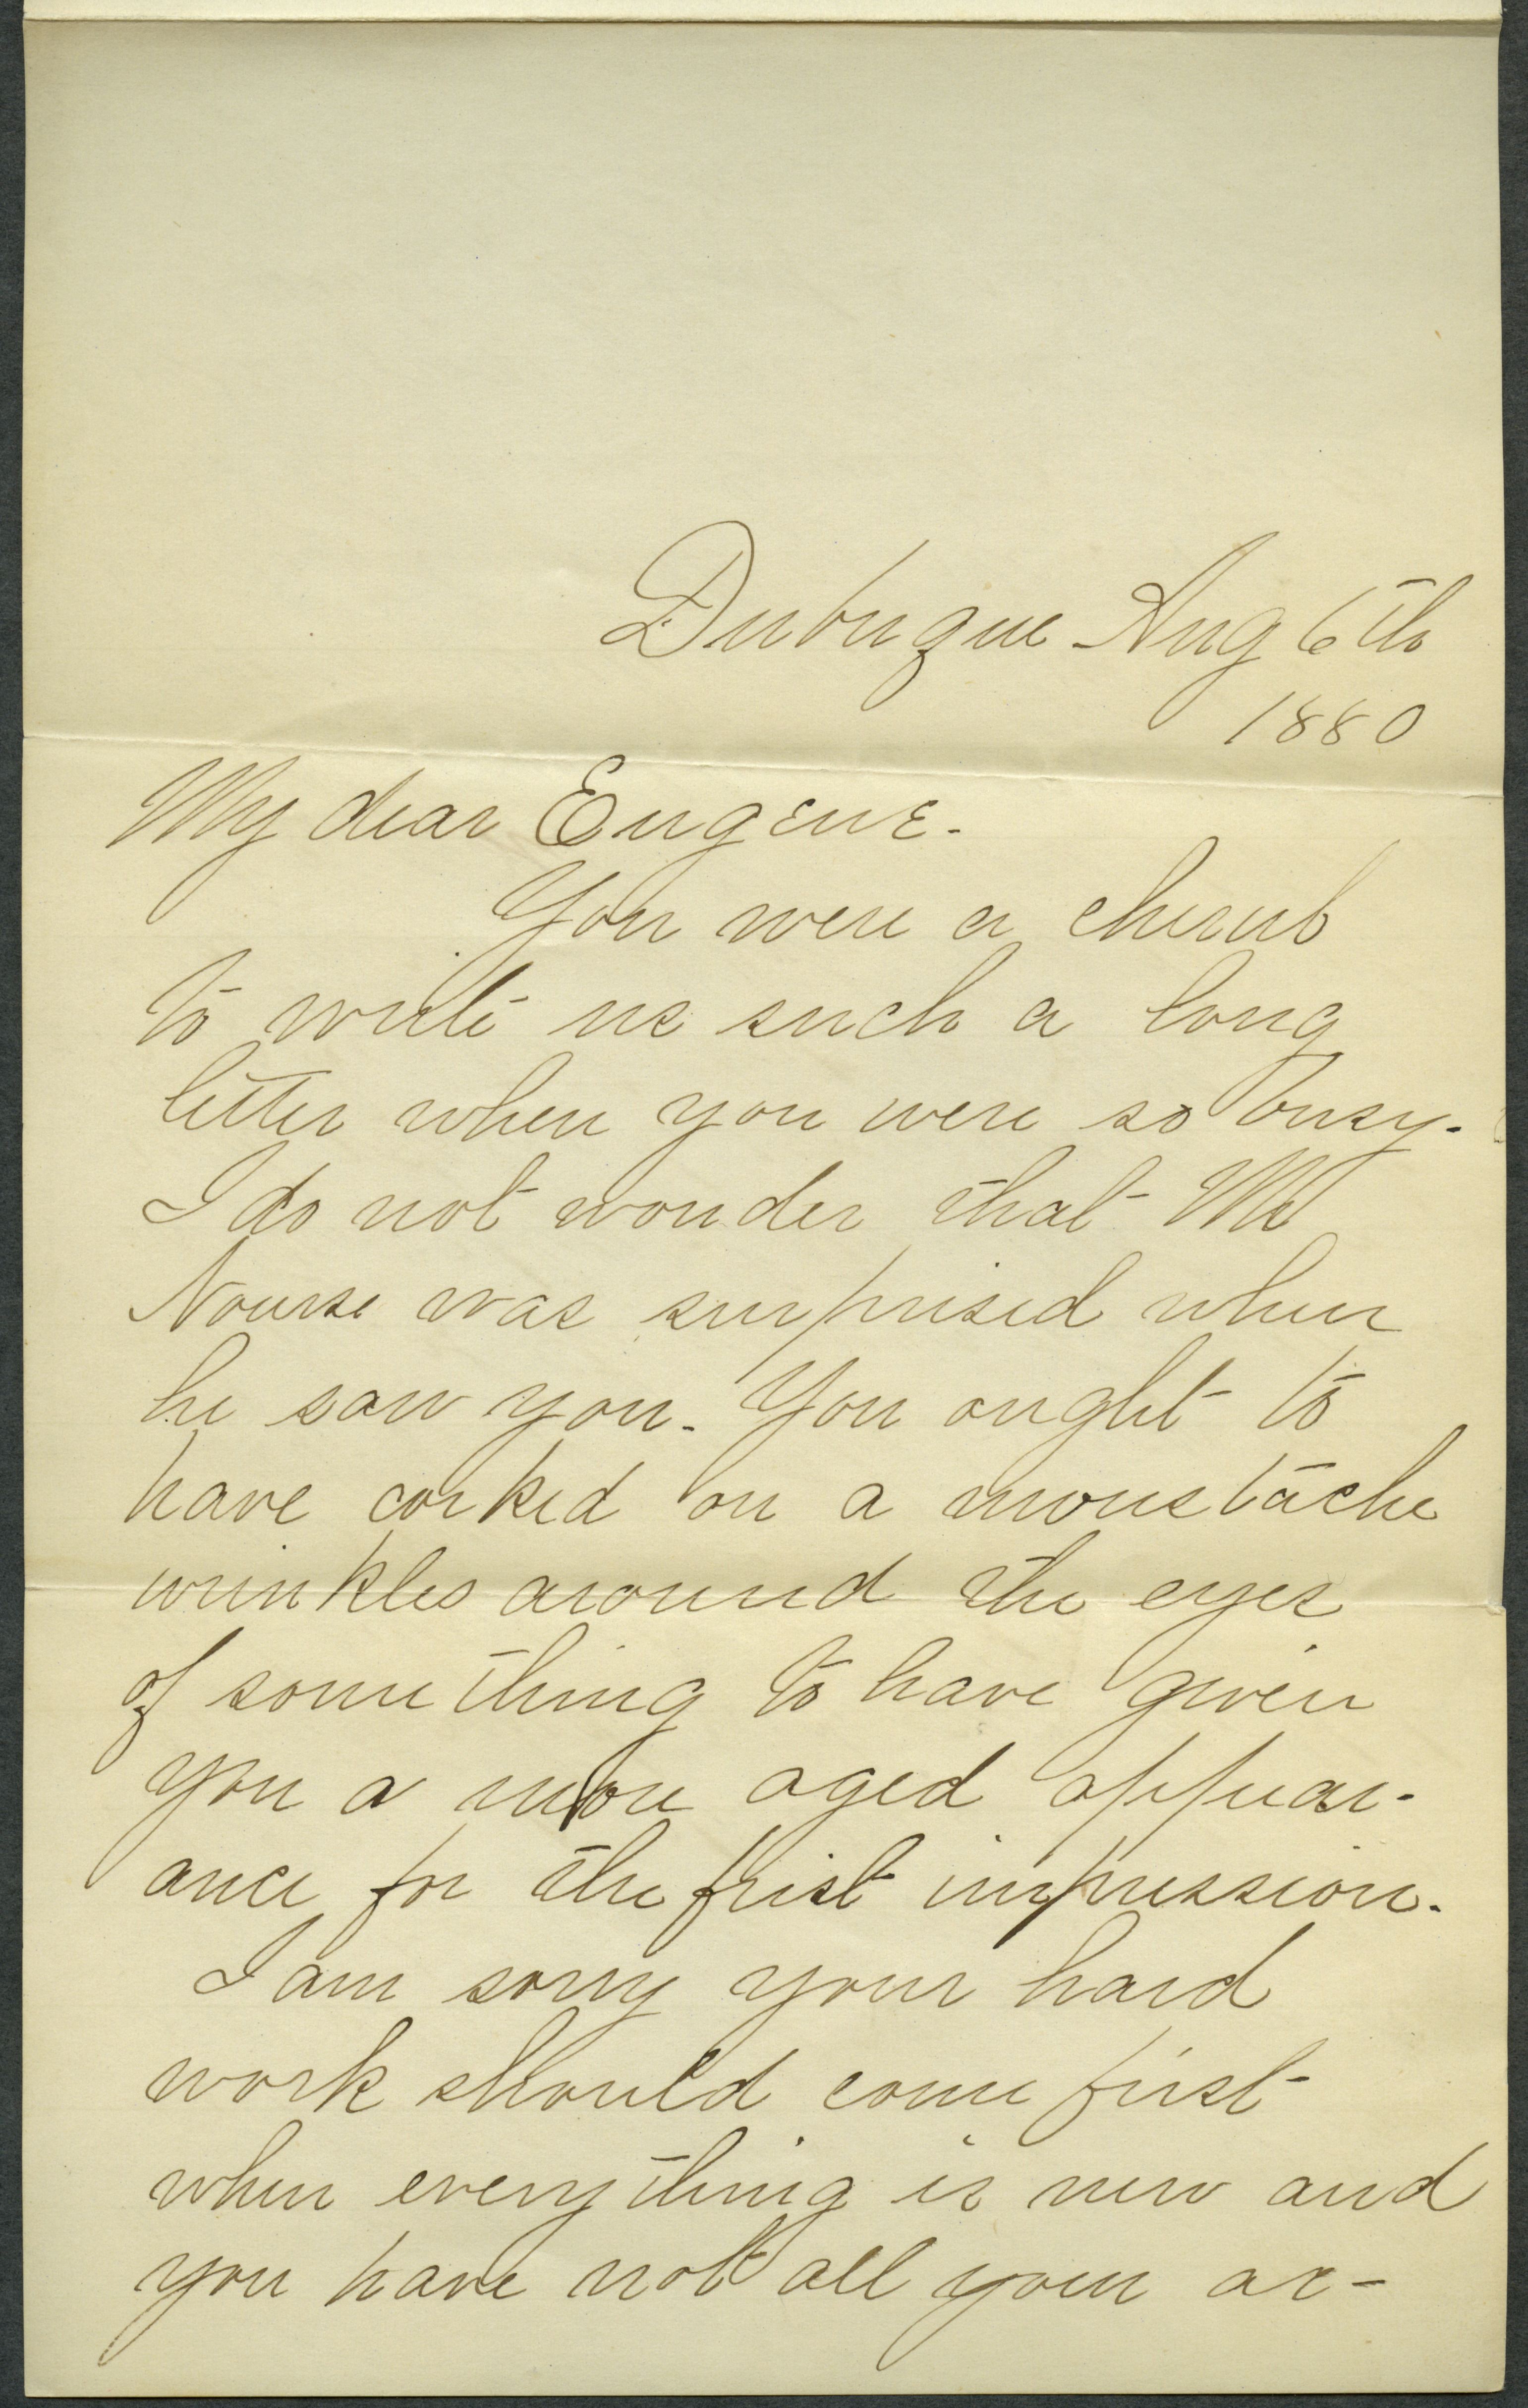 Dubuque Aug 6th
1880
My dear Eugene-
You were a cherub
to write us such a long
letter when you were so busy.
I do not wonder that Mr
Nourse was surprised when
he saw you. You ought to
have corked on a moustache
wrinkles around the eyes
of something to have given
you a more aged appear-
ance for the frist impression.
I am sorry your hard
work should come first
when everything is new and
you have not all your ar-